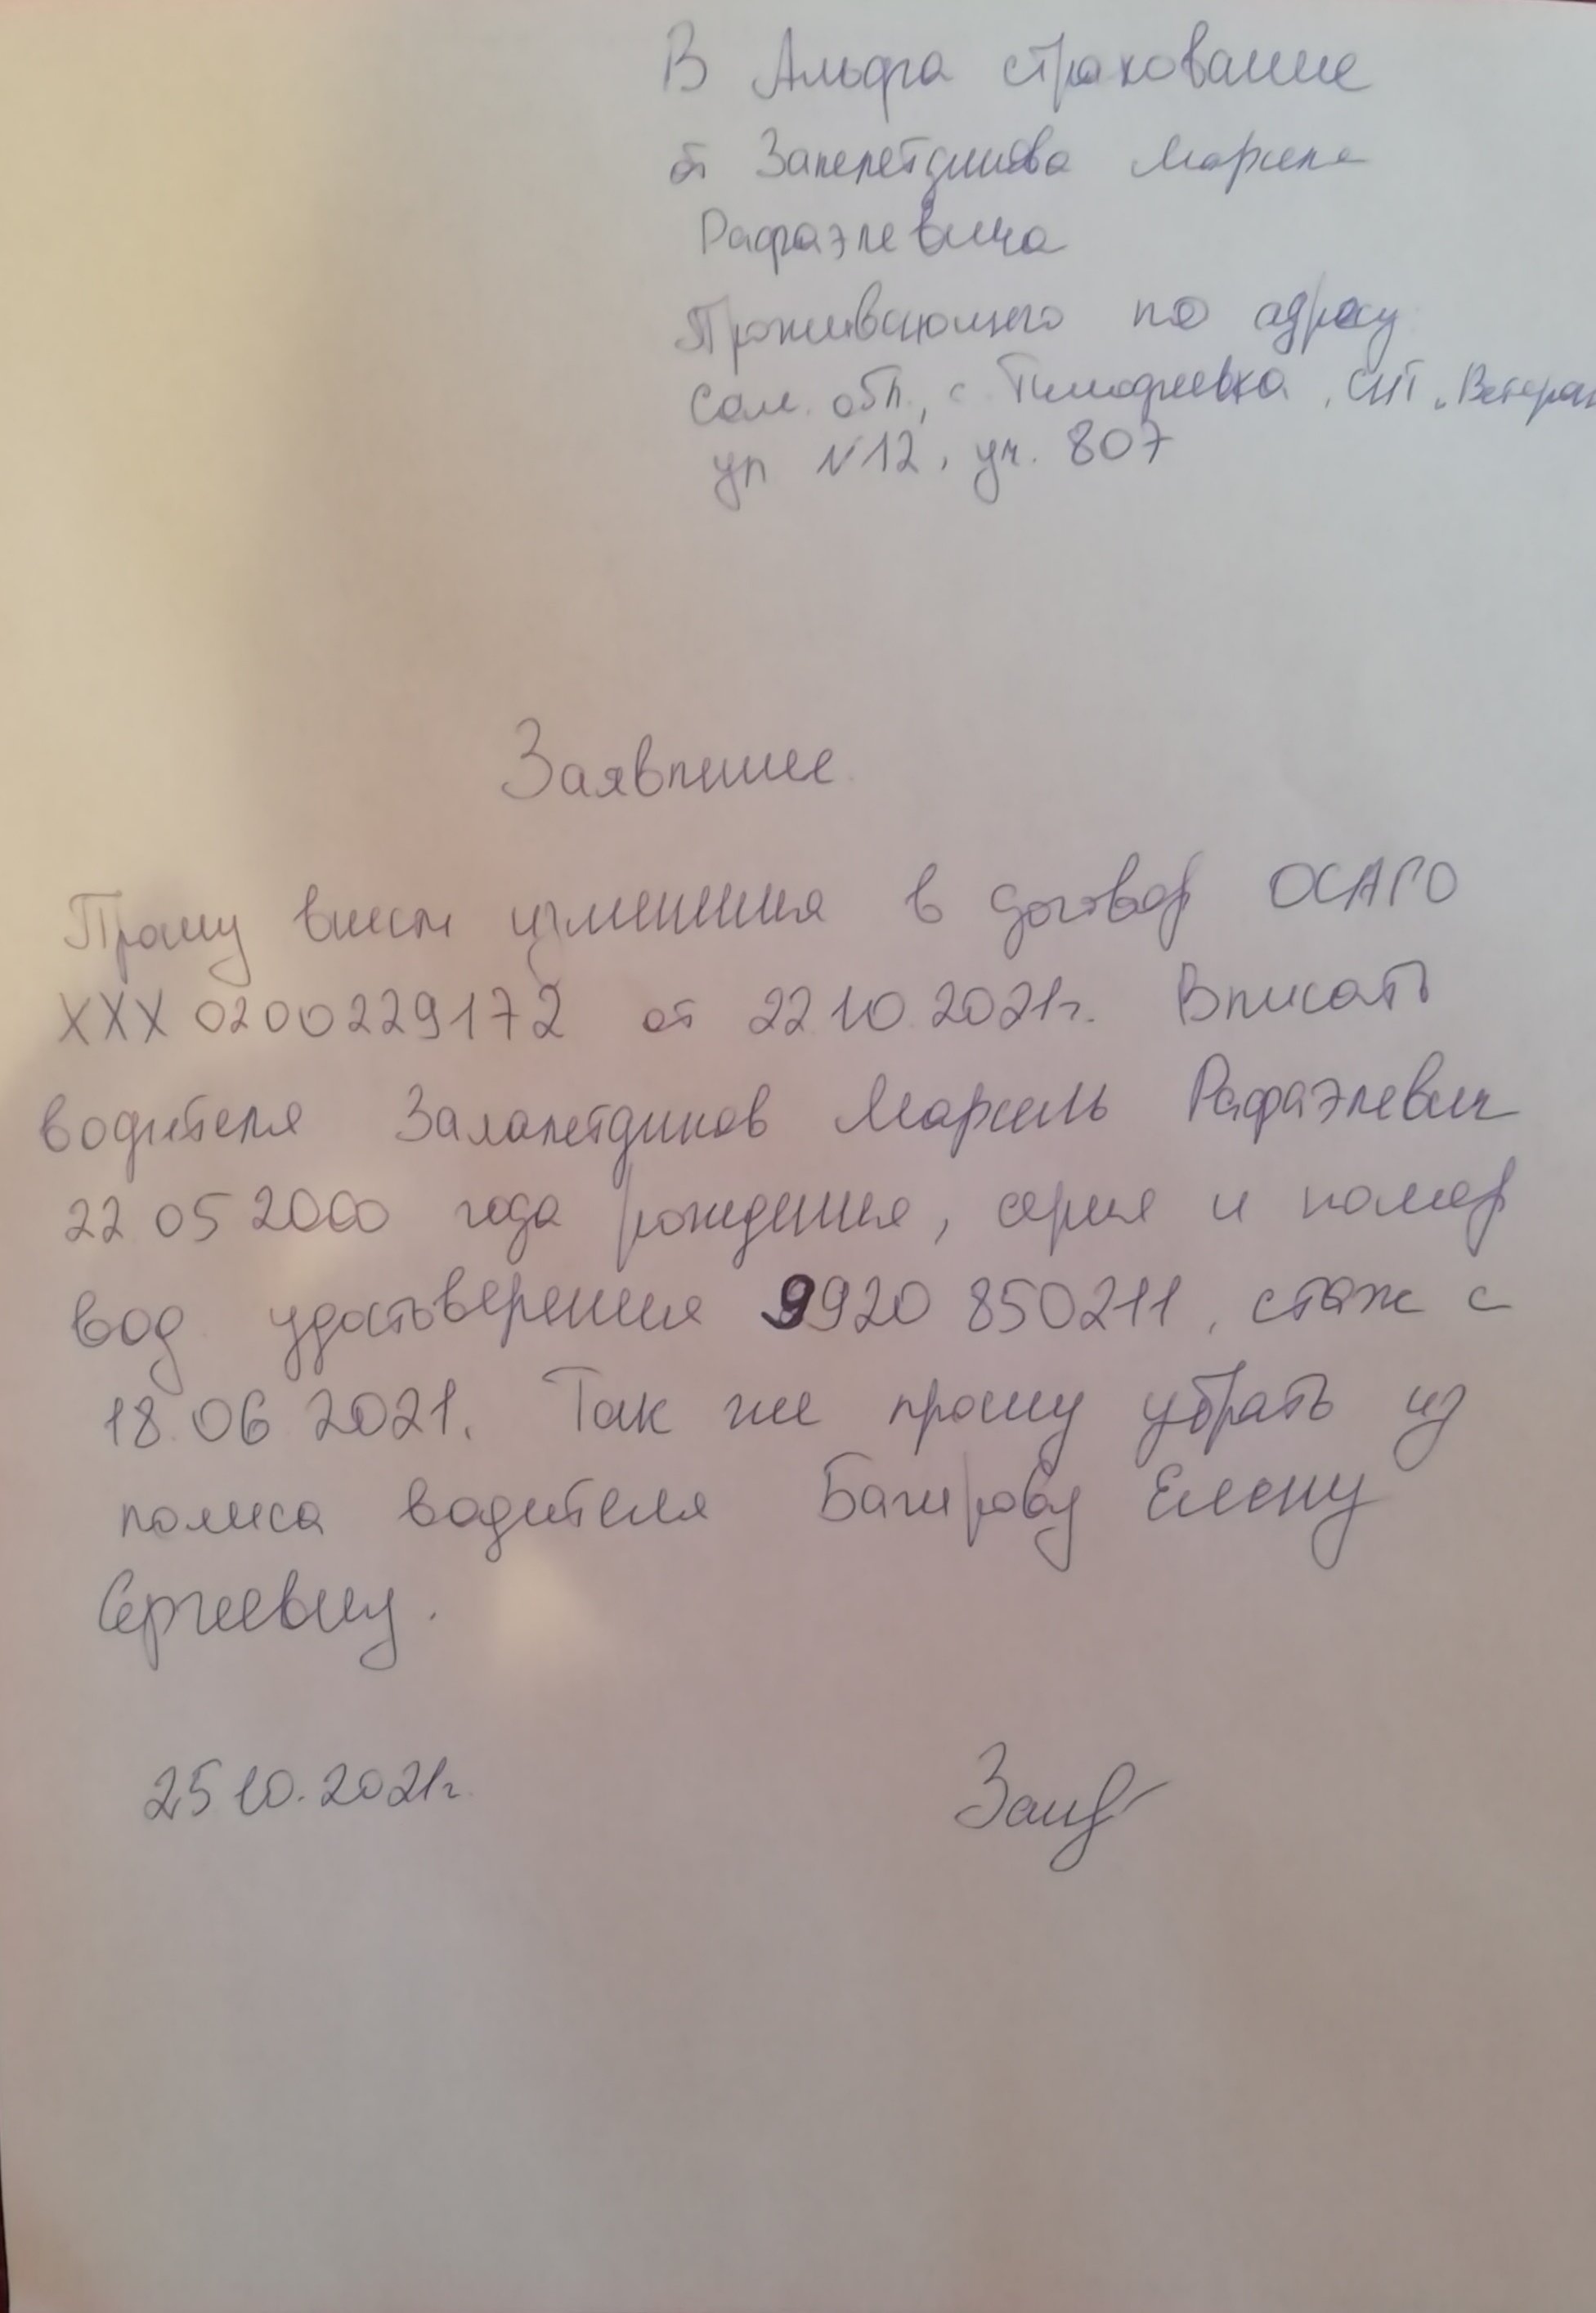 В Альфа страхование
от Залалетдинова Марселя
Рафаэлевича
Проживающего по адресу
Сам. обл., с. Тимофеевка, СНТ "Ветеран
ул N12, уч. 807
Заявление.
Прошу внести изменения в договор ОСАГО
ХХХ 0200229172 от 22 10.2021г. Вписать
водителя Залалетдинов Марсель Рафаэлевич
22 05 2000 года рождения, серия и номер
вод удостоверения 9920 850211, стаж с
18.06 2021. Так же прошу убрать из
полиса водителя Багирову Елену
Сергеевну.
25 10.2021г.